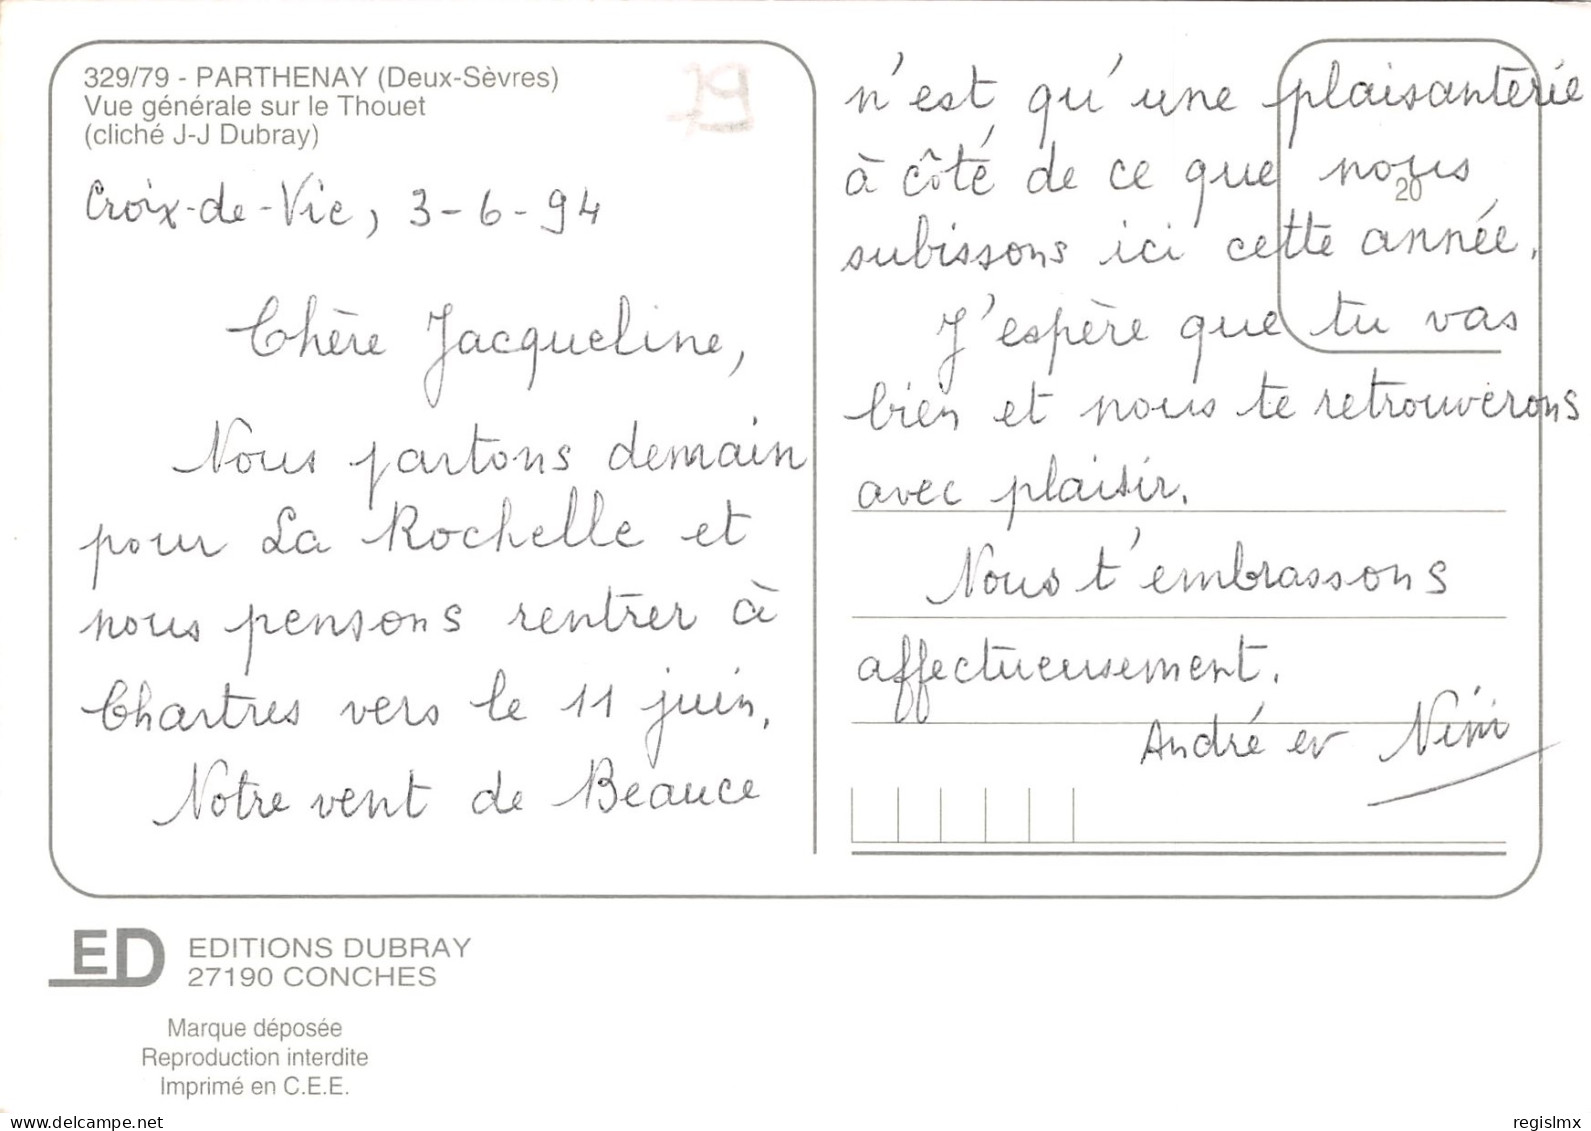 329/79 - PARTHENAY (Deux-Sèvres)
Vue générale sur le Thouet
(cliché J-J Dubray)
79
Croix-de-Vie, 3-6-94
Chère Jacqueline,
Nous partons demain
pour La Rochelle et
nous pensons rentrer à
Chartres vers le 11 juin.
Notre vent de Beauce
n'est qu'une plaisanterie
à côté de ce que nous
20
subissons ici cette année.
J'espère que tu vas
bien et nous te retrouverons
avec plaisir.
Nous t'embrassons
affectueusement.
André et Nini
ED
EDITIONS DUBRAY
27190 CONCHES
Marque déposée
Reproduction interdite
Imprimé en C.E.E.
www.delcampe.net
regislmx